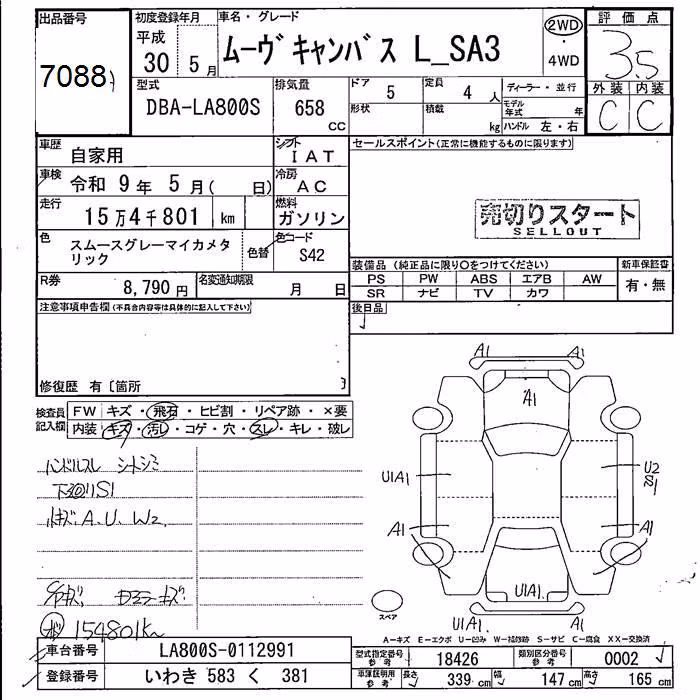 出品番号
7088
初度登録年月
平成
30 5月
車名・グレード
ムーヴキャンバス L_SA3
2WD
・
4WD
評価点
3.5
外装 内装
C C
型式
DBA-LA800S
排気量
658
CC
ドア
5
定員
4 人
形状
積載
kg
ディーラー・並行
モデル年式 年
ハンドル 左・右
車歴
自家用
シフト
IAT
車検
令和 9年 5月( 日)
冷房
AC
走行
15万4千801 km
燃料
ガソリン
色
スムースグレーマイカメタリック
色替
色コード
S42
R券
8,790円
名変通知期限
月 日
セールスポイント(正常に機能するものに限ります)
売切りスタート
SELLOUT
装備品 (純正品に限り○をつけてください)
PS PW ABS エアB AW
SR ナビ TV カワ
新車保証書
有・無
後日品
注意事項申告欄(不具合内容等は具体的に記入して下さい)
修復歴 有〔箇所 〕
検査員記入欄
FW キズ・飛石・ヒビ割・リペア跡・×要
内装 キズ・汚レ・コゲ・穴・スレ・キレ・破レ
ハンドルスレ シートシミ
下回りS1
ルキズ A.U.W2.
154801km
A1
A1
A1
U1A1
U2
S1
A1
A1
U1A1.
U1A1.
U1
スペア
A-キズ E-エクボ U-凹み W-補修跡 S-サビ C-腐食 XX-交換済
車台番号
LA800S-0112991
登録番号
いわき 583 く 381
型式指定番号
参考
18426
類別区分番号
参考
0002
車庫証明用
参考
長さ 339 cm
幅 147 cm
高さ 165 cm